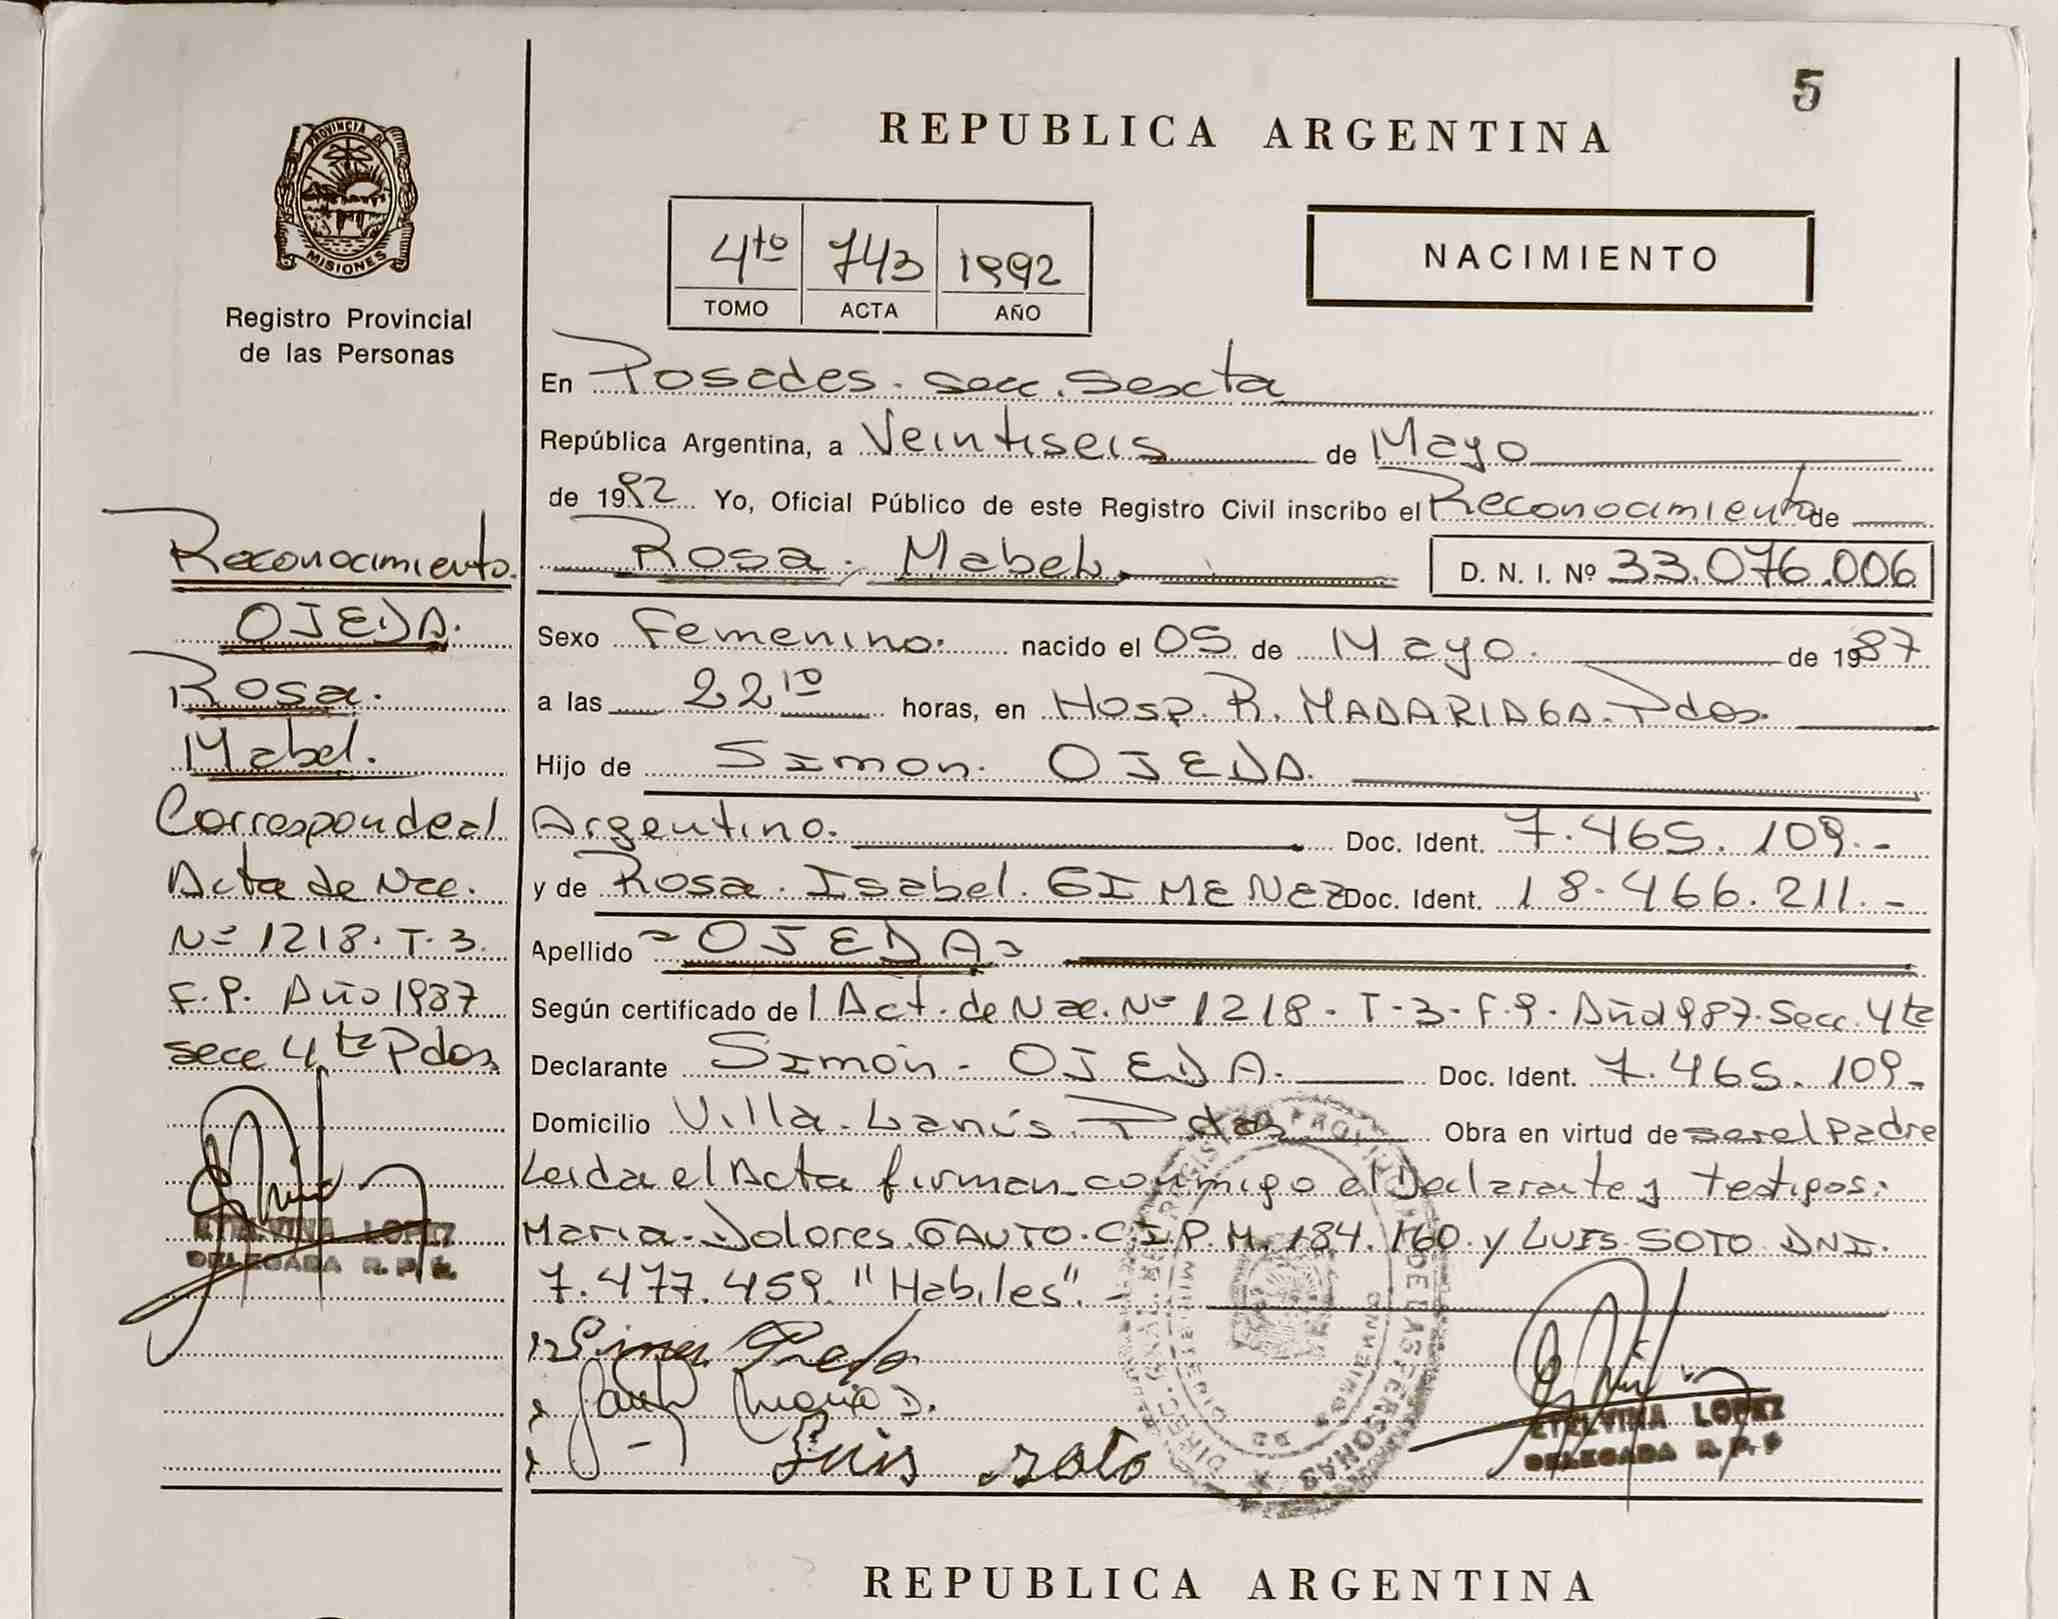 5
REPUBLICA ARGENTINA
PROVINCIA DE
MISIONES
Registro Provincial
de las Personas
4to 743 1992
TOMO ACTA AÑO
NACIMIENTO
En Posadas. secc. Sexta
República Argentina, a Veintiseis de Mayo
de 1992 Yo, Oficial Público de este Registro Civil inscribo el Reconocimiento de
Rosa. Mabel. D. N. I. Nº 33.076.006
Sexo Femenino. nacido el 05 de Mayo. de 1987
a las 22 10 horas, en Hosp. R. MADARIAGA. Pdas.
Hijo de Simon. OJEDA.
Argentino. Doc. Ident. 7.465.109.-
y de Rosa. Isabel. GIMENEZ Doc. Ident. 18.466.211.-
Apellido =OJEDA=
Según certificado de Act. de Nac. Nº 1218. T-3- F.9. Año 1987. Secc. 4ta
Declarante Simón. OJEDA. Doc. Ident. 7.465.109-
Domicilio Villa. Lanús. Pdas Obra en virtud de ser el Padre
Leida el Acta firman conmigo el Declarante y testigos:
Maria. Dolores. GAUTO. C.I.P.M. 184.160. y LUIS SOTO DNI.
7.477.459. "Habiles". -
Maria D.
Luis soto
ETELVINA LOPEZ
DELEGADA R. P. P.
Reconocimiento.
OJEDA.
Rosa.
Mabel.
Corresponde al
Acta de Nac.
Nº 1218. T-3.
F.9. Año 1987
secc 4ta Pdas
ETELVINA LOPEZ
DELEGADA R. P. P.
REPUBLICA ARGENTINA